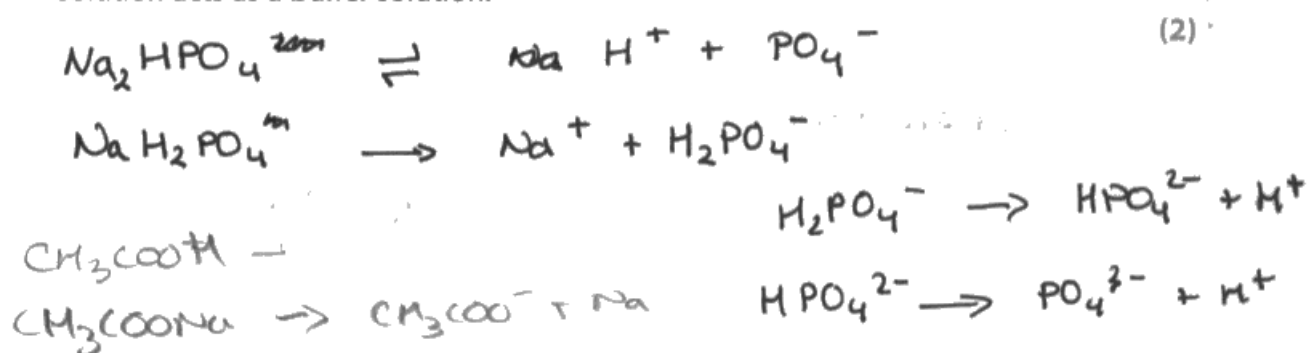 (2)
Na₂HPO₄ ⇌ H⁺ + PO₄⁻
NaH₂PO₄ → Na⁺ + H₂PO₄⁻
H₂PO₄⁻ → HPO₄²⁻ + H⁺
CH₃COOH –
CH₃COONa → CH₃COO⁻ + Na
HPO₄²⁻ → PO₄³⁻ + H⁺